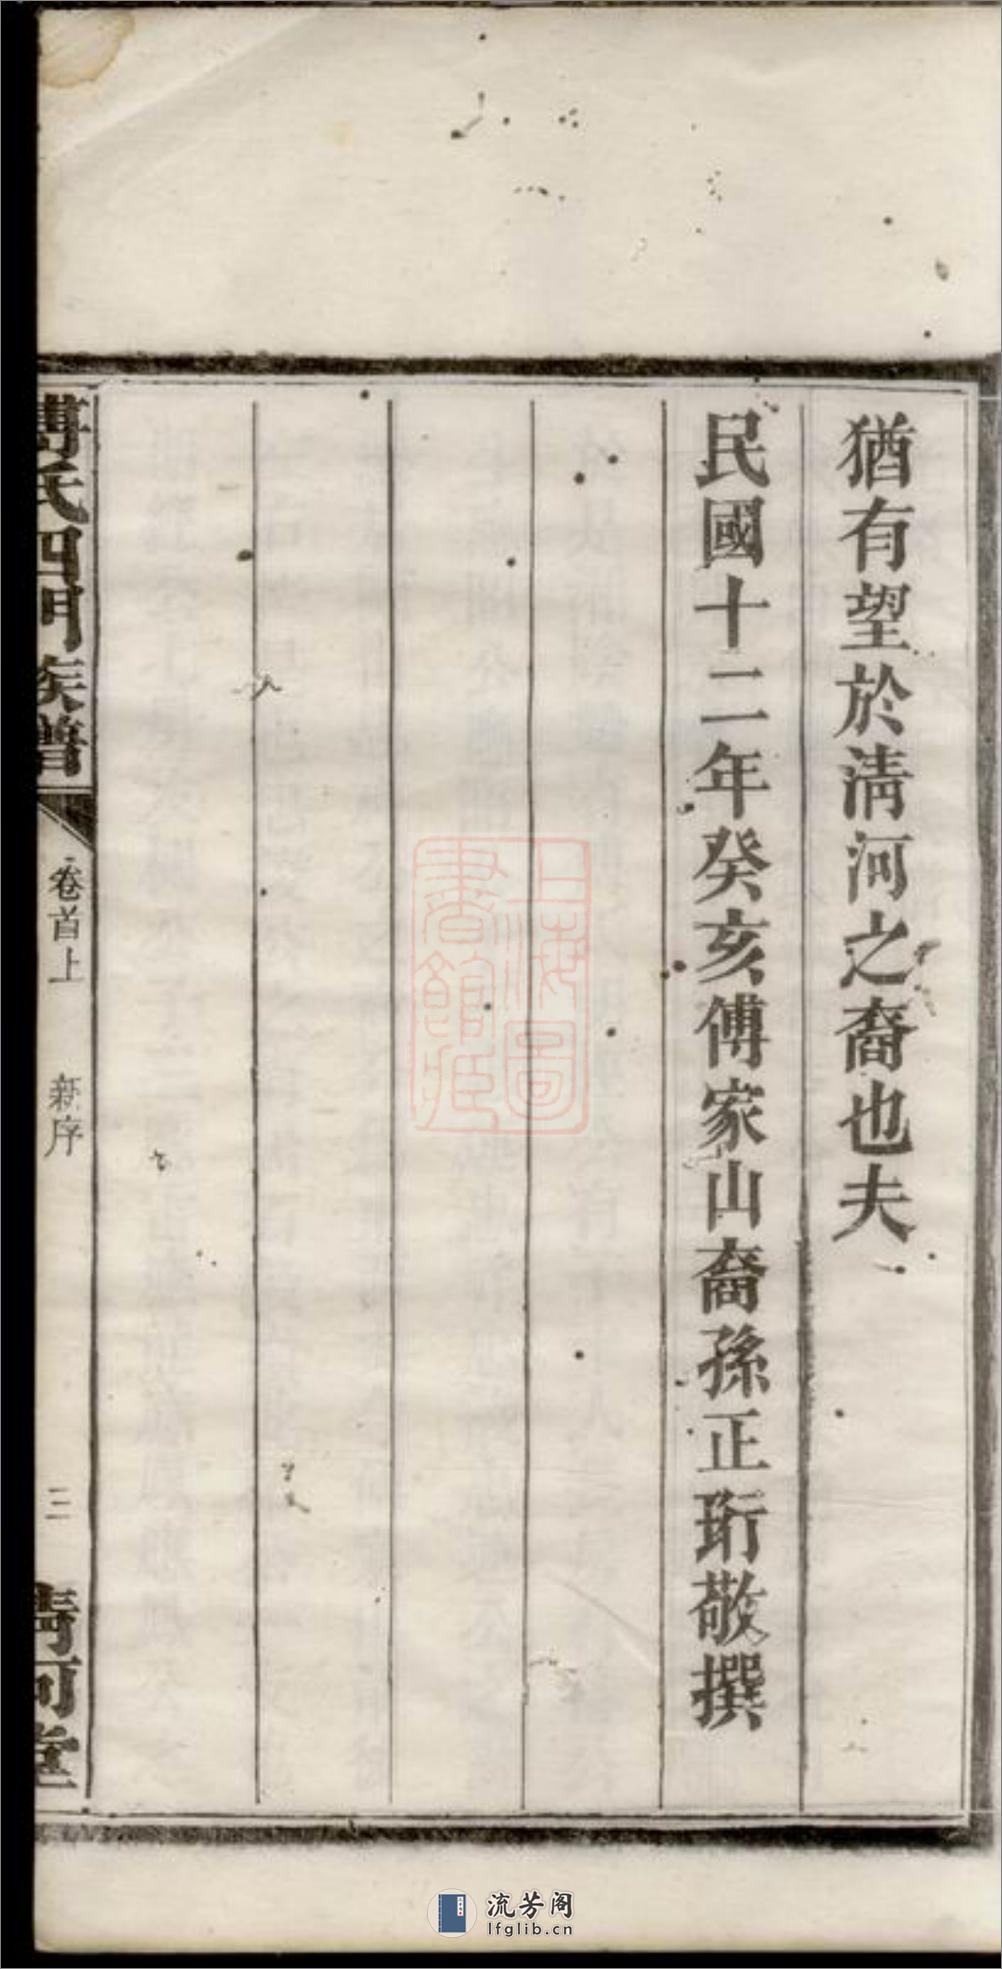 猶有望於清河之裔也夫
民國十二年癸亥傅家山裔孫正珩敬撰
傅氏四門族譜
卷首上
新序
三
清河堂
上海圖
書館藏
流芳阁
lfglib.cn